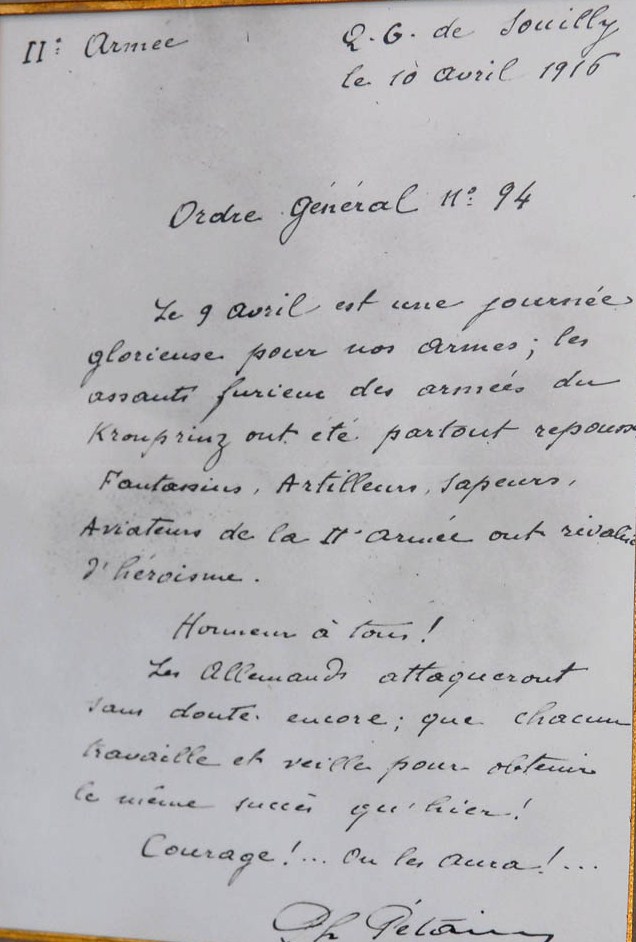 IIe Armée
Q.G. de Souilly
le 10 avril 1916
Ordre Général No 94
Le 9 avril est une journée
glorieuse pour nos armes ; les
assauts furieux des armées du
Kronprinz ont été partout repouss
Fantassins, Artilleurs, Sapeurs,
Aviateurs de la IIe Armée ont rivalisé
d'héroïsme.
Honneur à tous !
Les Allemands attaqueront
sans doute encore ; que chacun
travaille et veille pour obtenir
le même succès qu'hier !
Courage !... On les aura !...
Ph Pétain